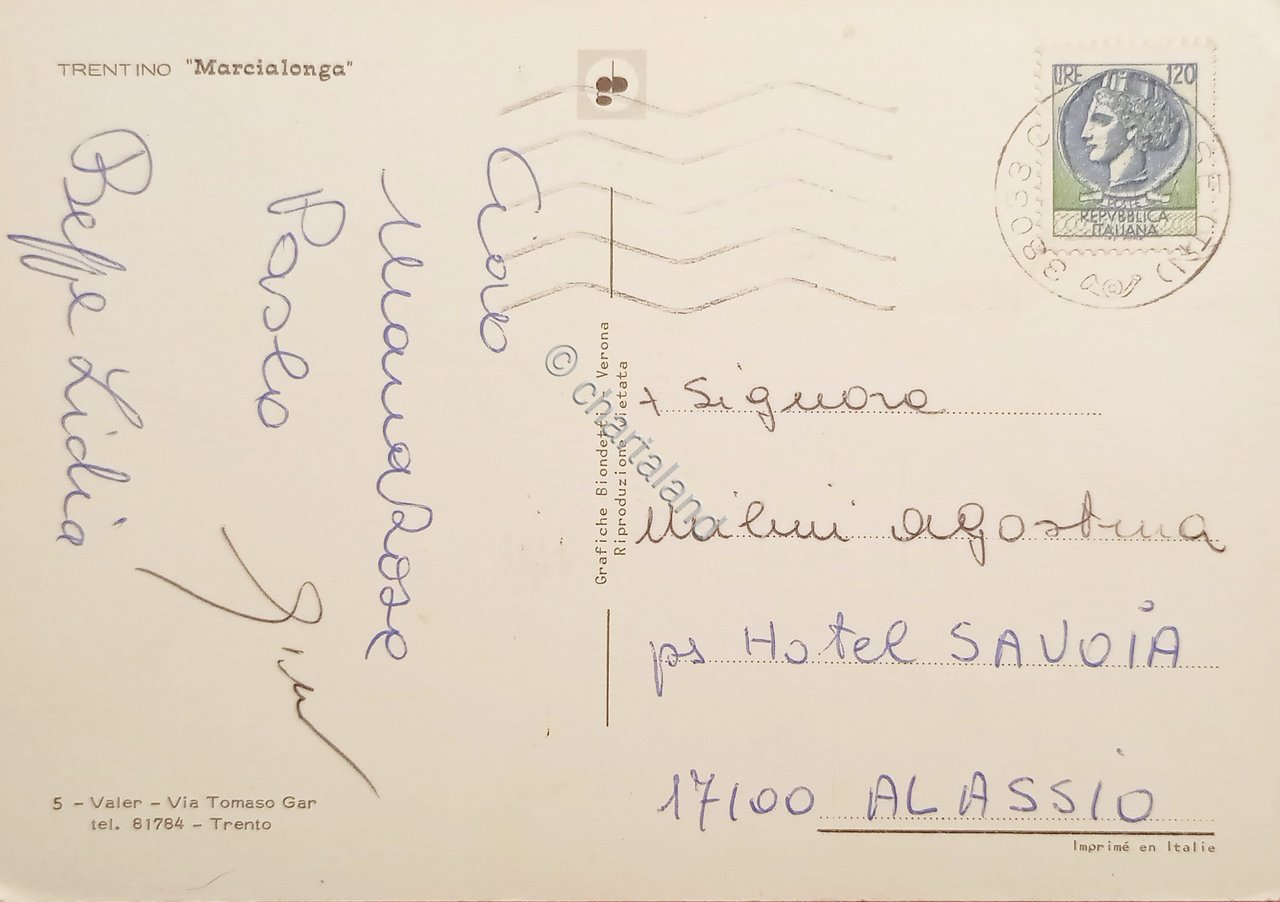 TRENTINO "Marcialonga"
Ciao
Mariarosa
Paolo
Beppe Lidia
5 - Valer - Via Tomaso Gar
tel. 81784 - Trento
Grafiche Biondetti - Verona
Riproduzione vietata
© chartaland
LIRE 120
POSTE
REPVBBLICA
ITALIANA
38033 C SE (TN)
+ Signora
agostina
ps Hotel SAVOIA
17100 ALASSIO
Imprimé en Italie